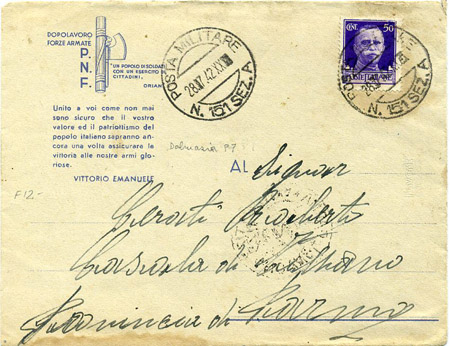 DOPOLAVORO
FORZE ARMATE
P.
N.
F.
"UN POPOLO DI SOLDATI
CON UN ESERCITO DI
CITTADINI.
ORIANI
Unito a voi come non mai
sono sicuro che il vostro
valore ed il patriottismo del
popolo italiano sapranno an-
cora una volta assicurare la
vittoria alle nostre armi glo-
riose.
VITTORIO EMANUELE
POSTA MILITARE
N. 151 SEZ. A
CENT. 50
POSTE ITALIANE
POSTA MILITARE
N. 151 SEZ. A
Dalmazia P7
F12.-
AL Signor
Provincia di Parma